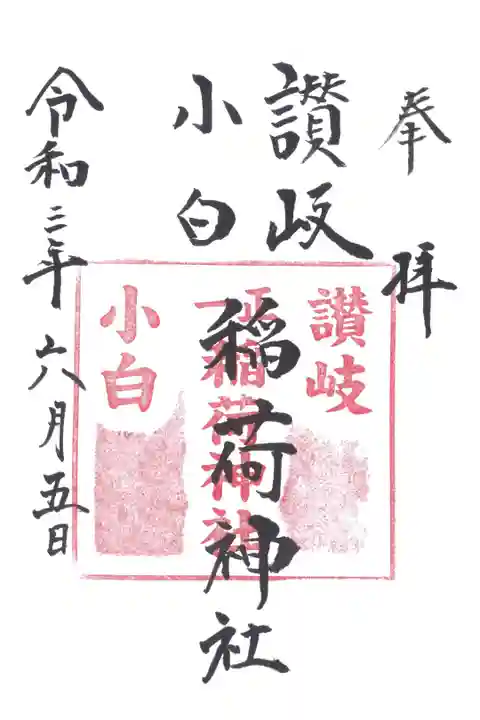 奉拝
讃岐
小白
稲荷神社
令和三年六月五日
讃岐
正一位稲荷神社
小白